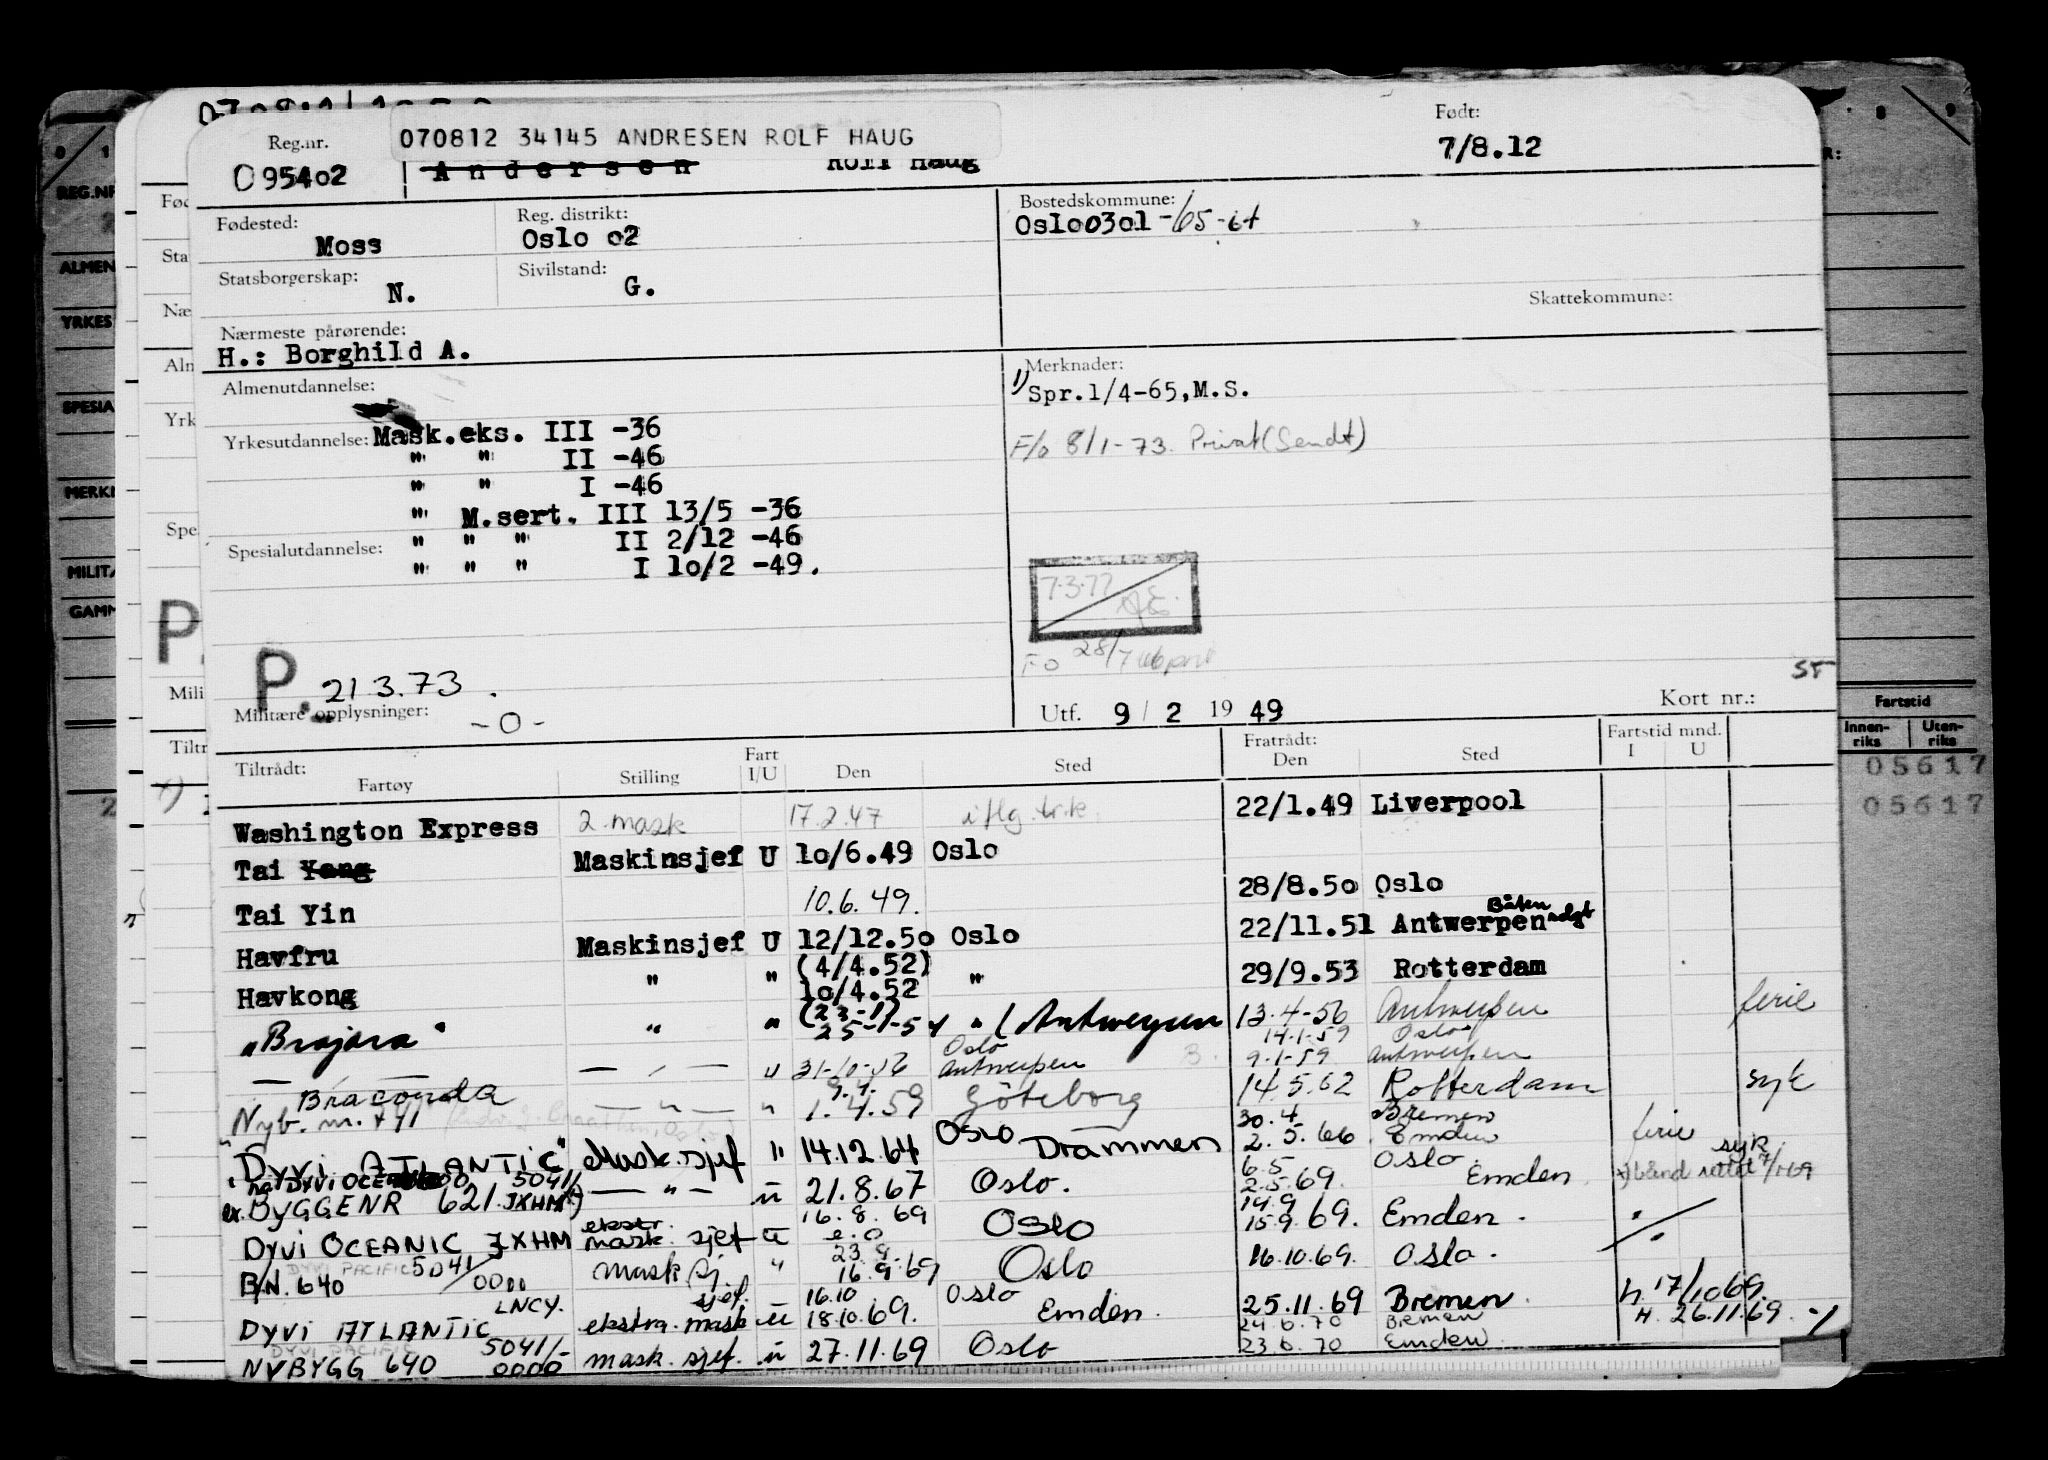 Reg.nr.
070812 34145 ANDRESEN ROLF HAUG
Født:
095402 Andersen Rolf Haug
7/8.12
Fødested: Moss
Reg. distrikt: Oslo 02
Bostedskommune:
Oslo0301-/65-it
Statsborgerskap: N.
Sivilstand: G.
Skattekommune:
Nærmeste pårørende:
H.: Borghild A.
Almenutdannelse:
Merknader:
1) Spr.1/4-65,M.S.
Yrkesutdannelse: Mask.eks. III -36
" " II -46
" " I -46
" M.sert. III 13/5 -36
Spesialutdannelse: " " " II 2/12 -46
" " " I 10/2 -49.
F/o 8/1-73. Privat (Sendt)
7.3.77
Fo 28/7
P. 21 3.73.
Militære opplysninger: -0-
Utf. 9/2 1949
Kort nr.:
ST
Tiltrådt:
Fartøy
Stilling
Fart I/U
Den
Sted
Fratrådt:
Den
Sted
Fartstid mnd.
I U
Washington Express 2. mask 17.2.47 iflg. tr.k. 22/1.49 Liverpool
Tai Yang Maskinsjef U 10/6.49 Oslo
Tai Yin 10.6.49. 28/8.50 Oslo
Havfru Maskinsjef U 12/12.50 Oslo 22/11.51 Antwerpen Båten solgt
Havkong " " (4/4.52) 10/4.52 " 29/9.53 Rotterdam
"Brajara" " " (23-1) 25-1-54 " (Antwerpen 13.4-56 Antwerpen ferie
— — " — u 31-10-56 Oslo Antwerpen 14.1.59 Oslo 9.1-59 Antwerpen
Braconda
Nyb. nr. 741 — " — " 9.4. 1.4.59 Göteborg 14.5.62 Rotterdam syk
"DYVI ATLANTIC" Mask.sjef " 14.12.64 Oslo Drammen 30.4 Bremen 2.5.66 Emden ferie
nå DYVI OCEANIC 5041/
ex. BYGGENR 621. JXHM — " — u 21.8.67 Oslo. 6.5 Oslo. 2.5.69. Emden syk
DYVI OCEANIC JXHM ekstr. mask. sjef u 16.8.69 Oslo 14.9 15.9.69. Emden.
DYVI PACIFIC 5041/
BN. 640 0000 mask sj. " 23.9. 16.9.69 Oslo 16.10.69. Oslo.
DYVI ATLANTIC LNCY. ekstra. mask sjef. u 16.10 Oslo 18.10.69. Emden. 25.11.69 Bremen. h. 17/10 69.
DYVI PACIFIC 5041/-
NYBYGG 640 0000 mask. sjef. u 27.11.69 Oslo 24.6.70 Bremen 23.6.70 Emden. H. 26.11.69.
REG.NR
ALMEN
YRKES
SPESIA
MERKI
MILIT
GAMM
Fartstid
Innen-riks
Uten-riks
05617
05617